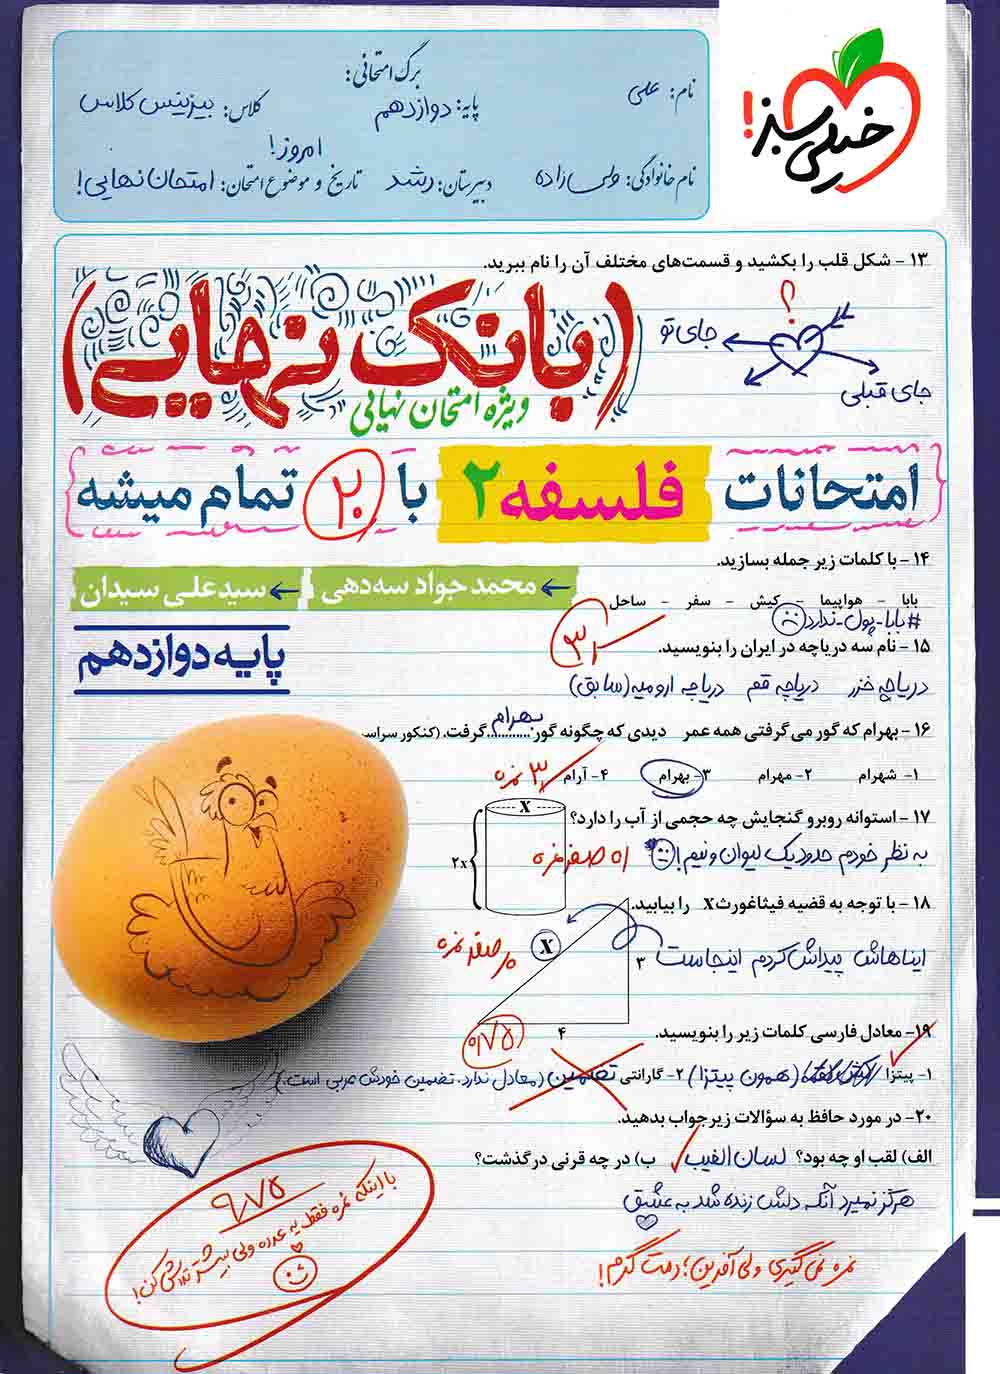 خیلی سبز!
برگ امتحانی:
نام: علی
پایه: دوازدهم
کلاس: بیزینس کلاس
امروز!
نام خانوادگی: ولی‌زاده
دبیرستان: رشد
تاریخ و موضوع امتحان: امتحان نهایی!
۱۳ - شکل قلب را بکشید و قسمت‌های مختلف آن را نام ببرید.
؟
جای تو
جای قبلی
(بانک نهایی)
ویژه امتحان نهایی
امتحانات فلسفه ۲ با ۲۰ تمام میشه
۱۴ - با کلمات زیر جمله بسازید.
بابا - هواپیما - کیش - سفر - ساحل
#بابا-پول-ندارد
محمد جواد سه‌دهی
سیدعلی سیدان
پایه دوازدهم
۱۵ - نام سه دریاچه در ایران را بنویسید.
دریاچه خزر دریاچه قم دریاچه ارومیه (سابق)
۱۶ - بهرام که گور می‌گرفتی همه عمر دیدی که چگونه گور....بهرام....گرفت. (کنکور سراسر
۱- شهرام ۲- مهرام ۳- بهرام ۴- آرام
۳ نمره
۱۷ - استوانه روبرو گنجایش چه حجمی از آب را دارد؟
X
2x
به نظر خودم حدود یک لیوان و نیم!
صفر نمره
۱۸ - با توجه به قضیه فیثاغورث X را بیابید.
X
۳
۴
ایناهاش پیداش کردم اینجاست
صفر نمره
۱۹- معادل فارسی کلمات زیر را بنویسید.
۰/۷۵
۱- پیتزا (همون پیتزا) ۲- گارانتی تضمین (معادل ندارد. تضمین خودش عربی است.)
۲۰- در مورد حافظ به سؤالات زیر جواب بدهید.
الف) لقب او چه بود؟ لسان الغیب ب) در چه قرنی درگذشت؟
هرگز نمیرد آنکه دلش زنده شد به عشق
نمره نمی‌گیری ولی آفرین؛ دمت گرم!
۹/۷۵
با اینکه نمره فقط یه عدده ولی بیشتر تلاش کن!